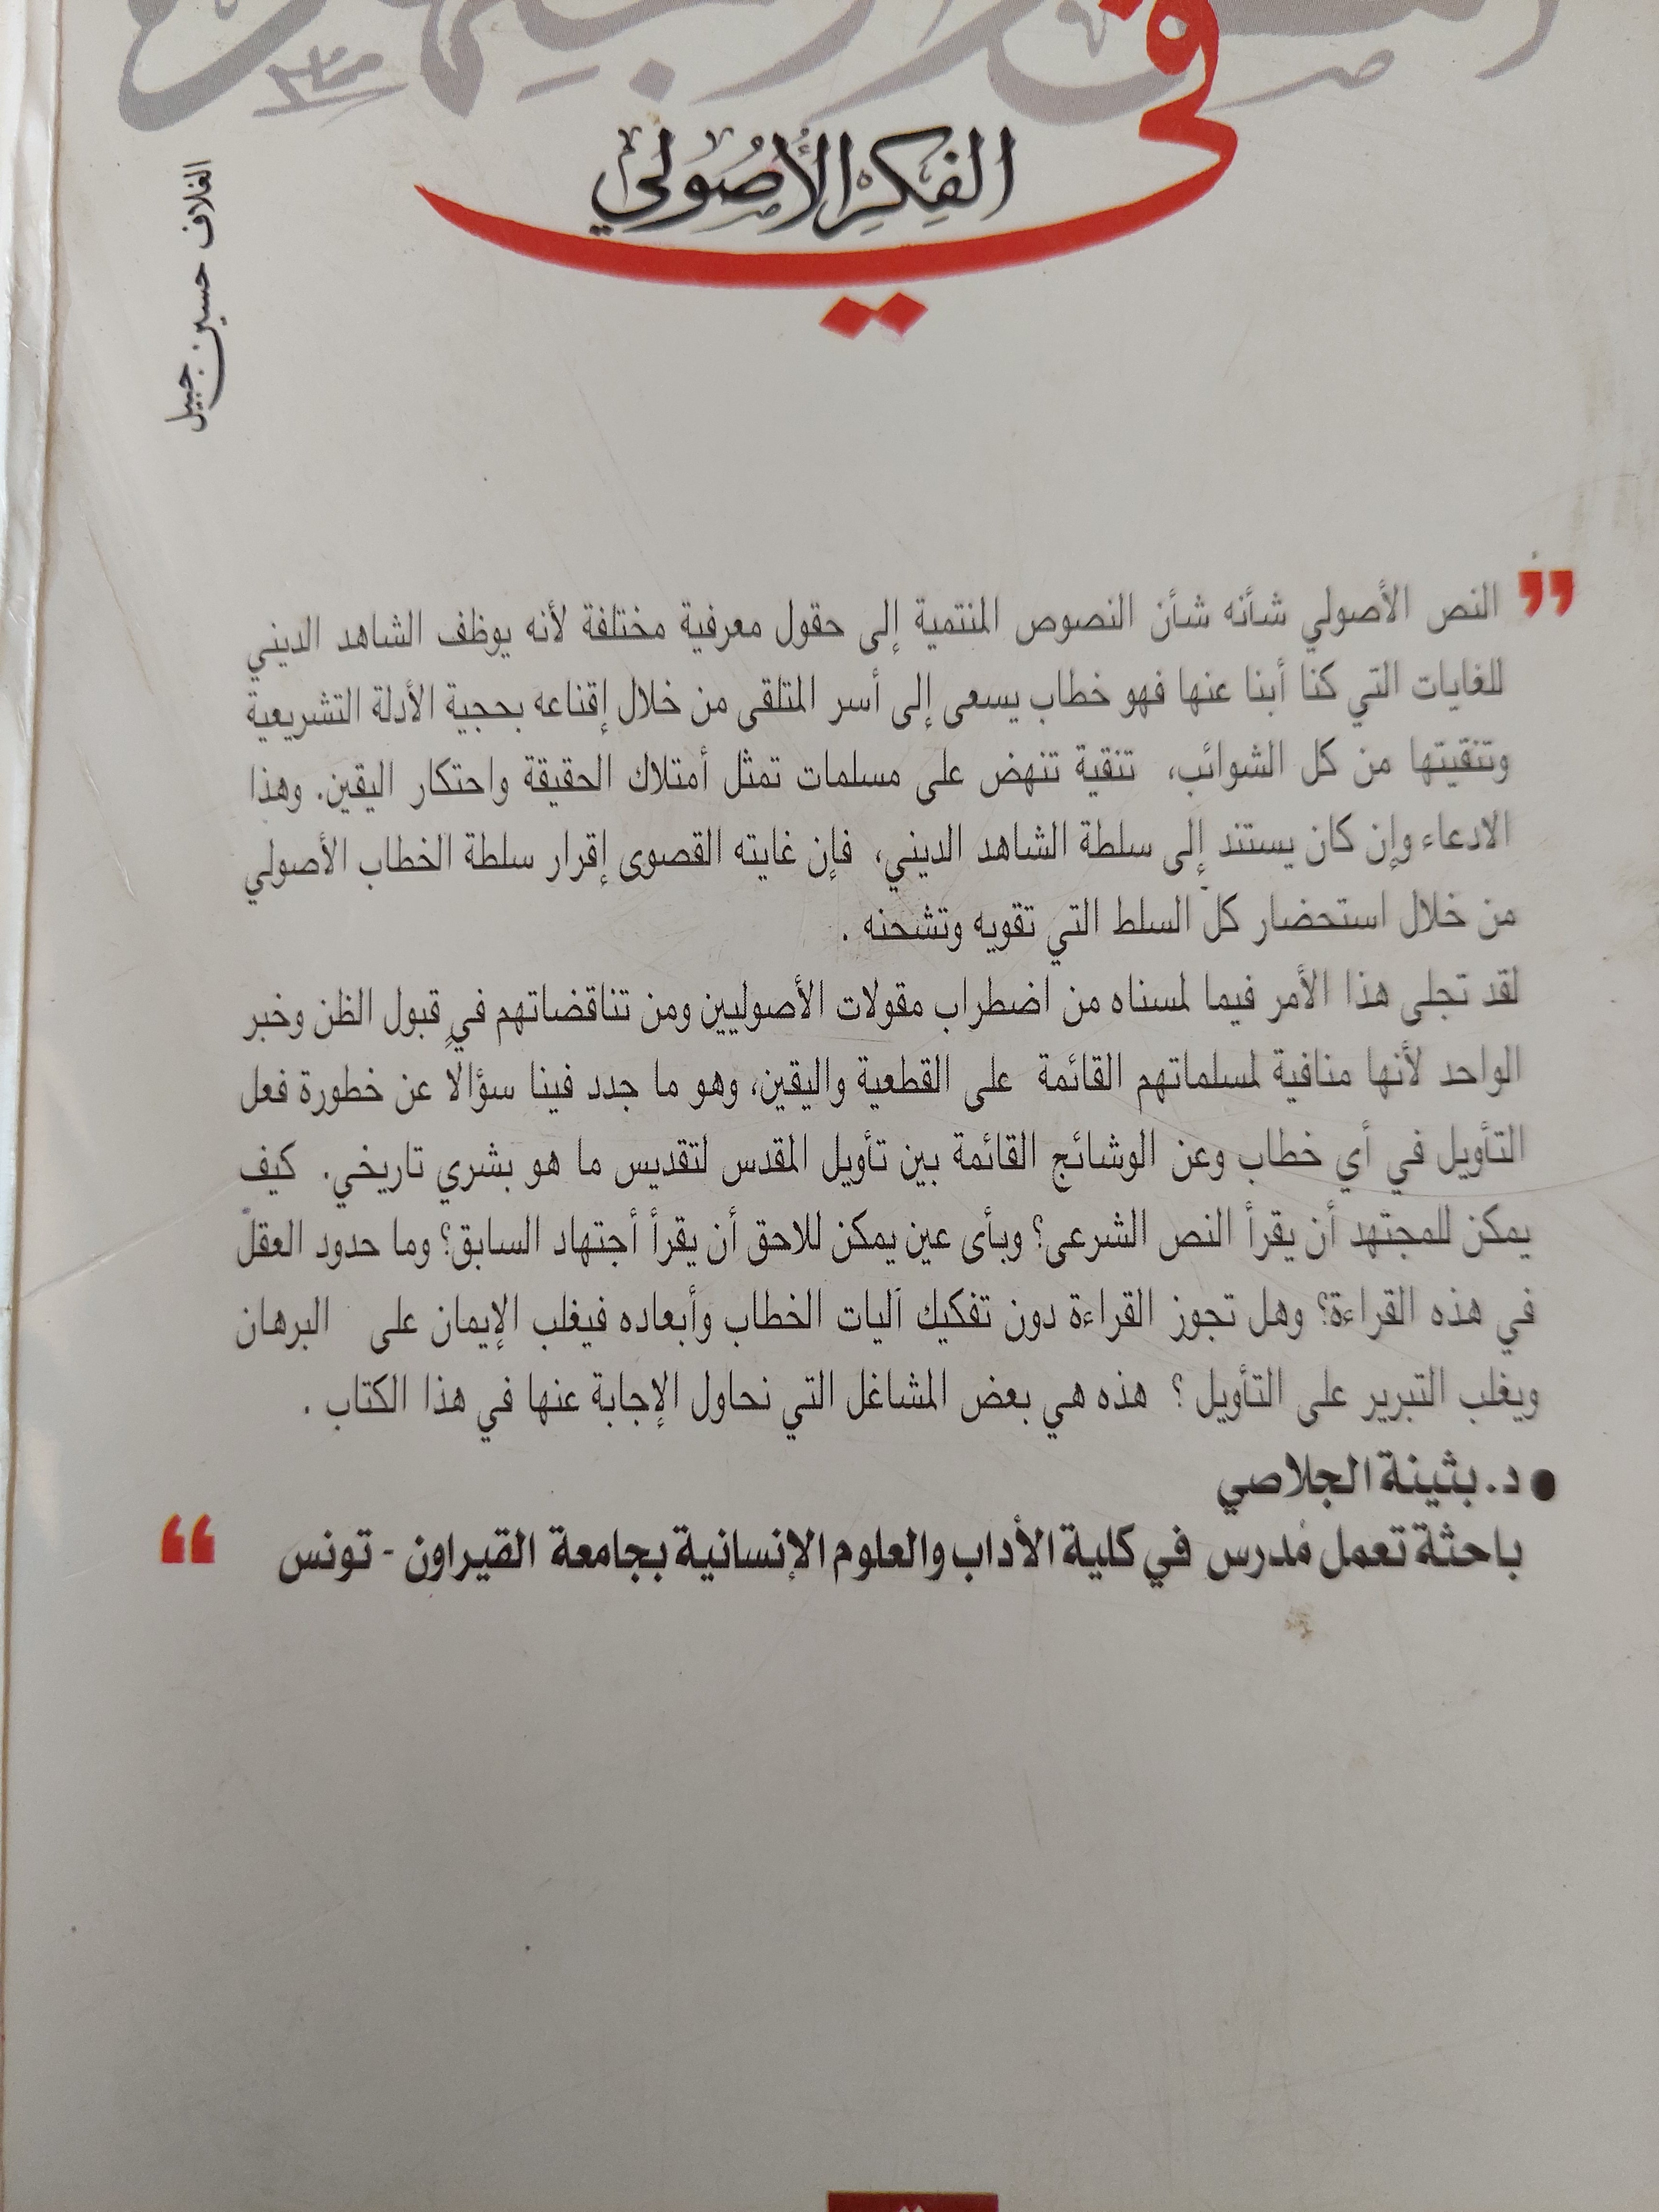 في
الفكر الأصولي
الغلاف حسين جبيل
النص الأصولي شأنه شأن النصوص المنتمية إلى حقول معرفية مختلفة لأنه يوظف الشاهد الديني
للغايات التي كنا أبنا عنها فهو خطاب يسعى إلى أسر المتلقى من خلال إقناعه بحجية الأدلة التشريعية
وتنقيتها من كل الشوائب، تنقية تنهض على مسلمات تمثل أمتلاك الحقيقة واحتكار اليقين. وهذا
الادعاء وإن كان يستند إلى سلطة الشاهد الديني، فإن غايته القصوى إقرار سلطة الخطاب الأصولي
من خلال استحضار كل السلط التي تقويه وتشحنه .
لقد تجلى هذا الأمر فيما لمسناه من اضطراب مقولات الأصوليين ومن تناقضاتهم في قبول الظن وخبر
الواحد لأنها منافية لمسلماتهم القائمة على القطعية واليقين، وهو ما جدد فينا سؤالا عن خطورة فعل
التأويل في أي خطاب وعن الوشائج القائمة بين تأويل المقدس لتقديس ما هو بشري تاريخي. كيف
يمكن للمجتهد أن يقرأ النص الشرعى؟ وبأى عين يمكن للاحق أن يقرأ أجتهاد السابق؟ وما حدود العقل
في هذه القراءة؟ وهل تجوز القراءة دون تفكيك آليات الخطاب وأبعاده فيغلب الإيمان على البرهان
ويغلب التبرير على التأويل ؟ هذه هي بعض المشاغل التي نحاول الإجابة عنها في هذا الكتاب .
● د. بثينة الجلاصي
باحثة تعمل مُدرس في كلية الأداب والعلوم الإنسانية بجامعة القيراون - تونس